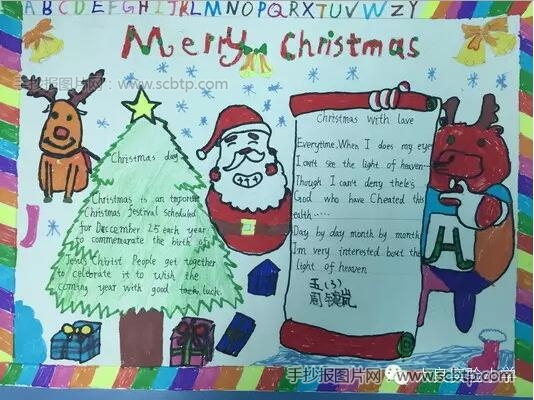 A B C D E F G H I J K L M N O P Q R S T U V W Z Y
Merry Christmas
手抄报图片网：www.scbtp.com
Christmas day
Christmas is an important
Christmas festival scheduled
for December 25 each year
to commemorate the birth of
Jesus Christ People get together
to celebrate it to wish the
coming year with good luck.
Christmas with love
Everytime.When I does my eye
I can't see the light of heaven...
Though I can't deny thele's
God who have Cheated this
ealth.....
Day by day month by month
I'm very interested bout the
light of heaven
五(3)
手抄报图片网：www.scbtp.com